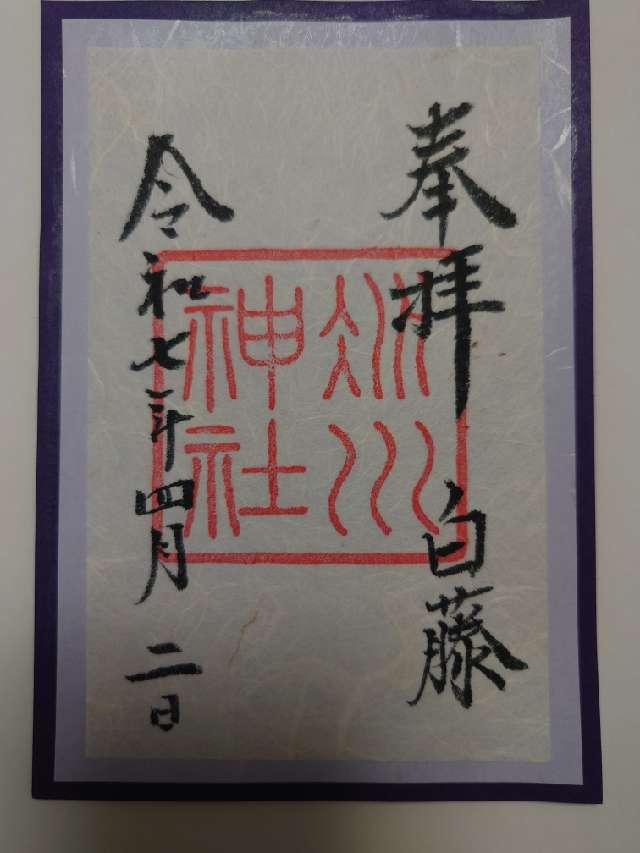 奉拝　白藤
冰川
神社
令和七年四月二日